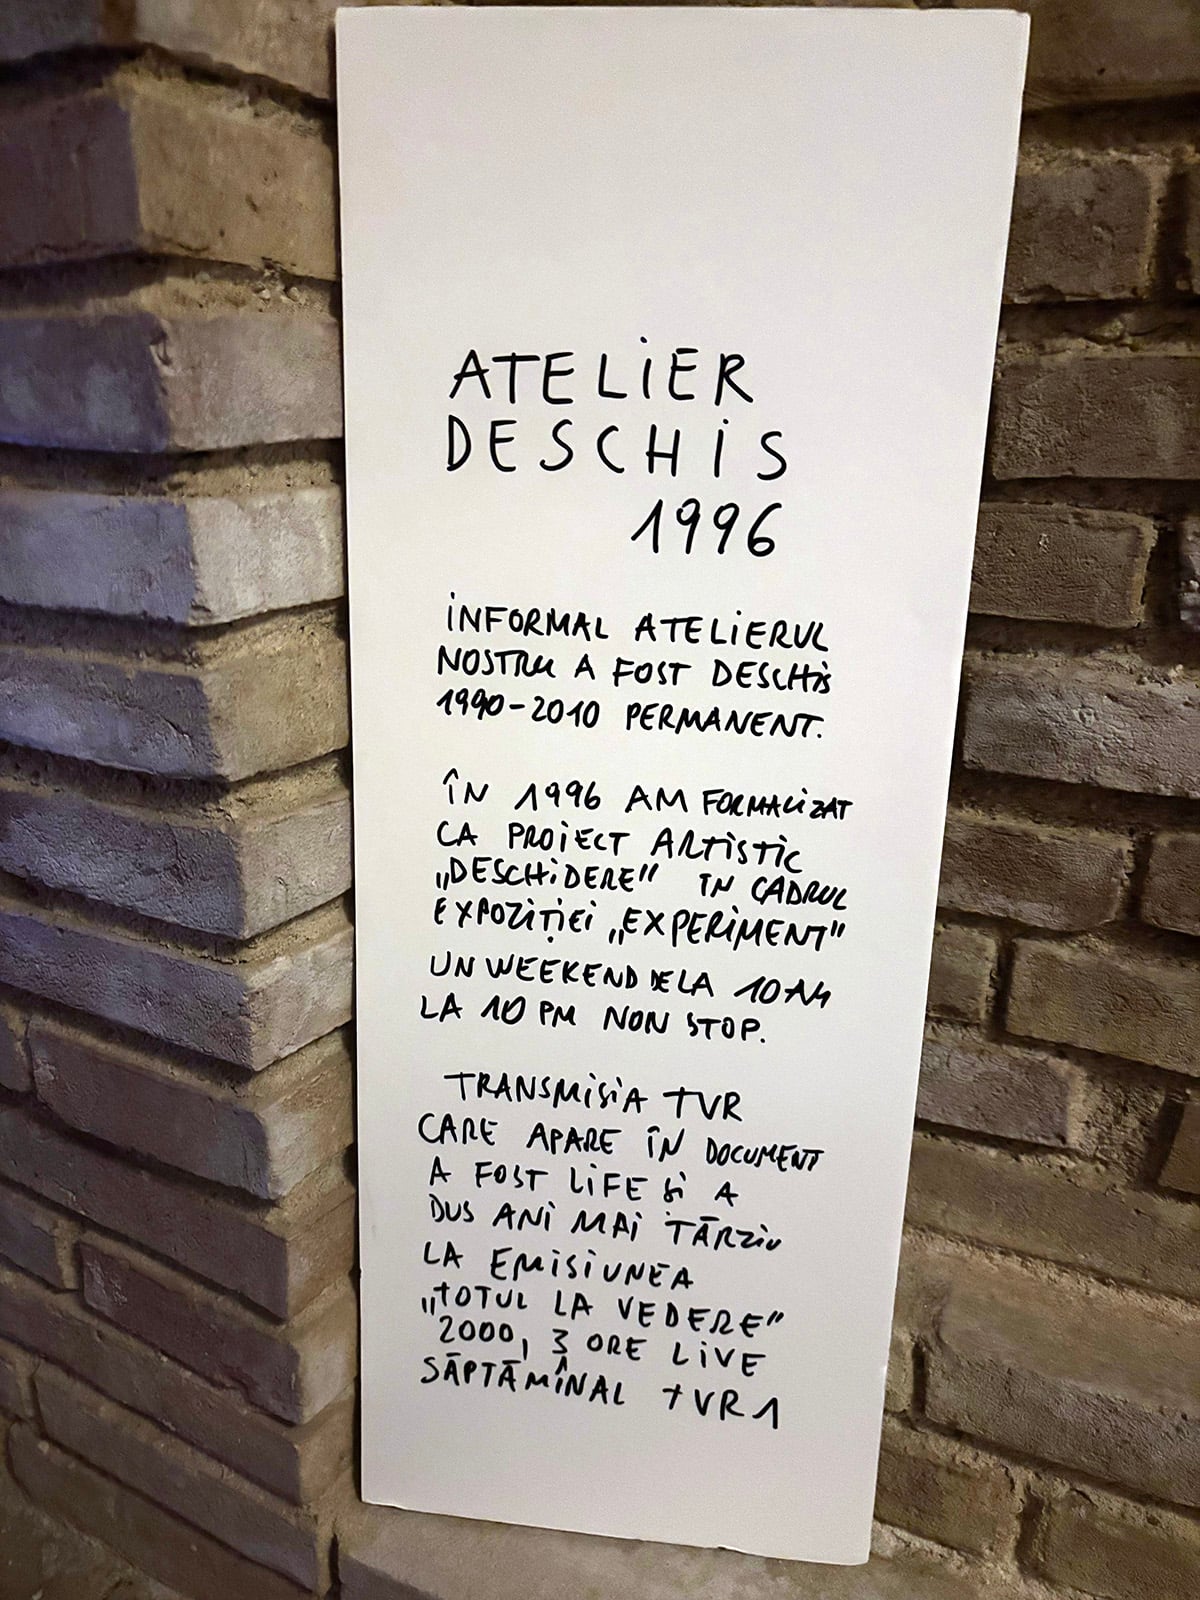 ATELiER
DESCHiS
1996
iNFORMAL ATELiERUL
NOSTRU A FOST DESCHiS
1990-2010 PERMANENT.
ÎN 1996 AM FORMALiZAT
CA PROiECT ARTiSTiC
„DESCHiDERE” IN CADRUL
EXPOZiȚiEi „EXPERiMENT”
UN WEEKEND DE LA 10 AM
LA 10 PM NON STOP.
TRANSMiSiA TVR
CARE APARE ÎN DOCUMENT
A FOST LiFE și A
DUS ANi MAi TĂRZiu
LA EMiSiUNEA
„TOTUL LA VEDERE”
2000, 3 ORE LiVE
SĂPTĂMÎNAL TVR 1